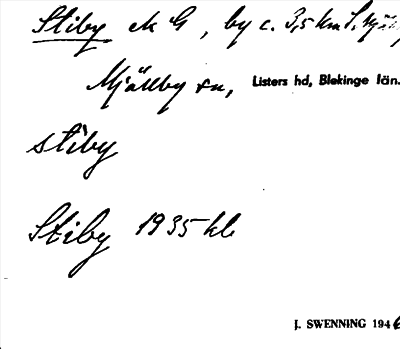 Stiby NG, by c. 3,5 km S. Mjäl
Mjällby sn, Listers hd, Blekinge län.
stiby
Stiby 1935 kb
J. SWENNING 1946